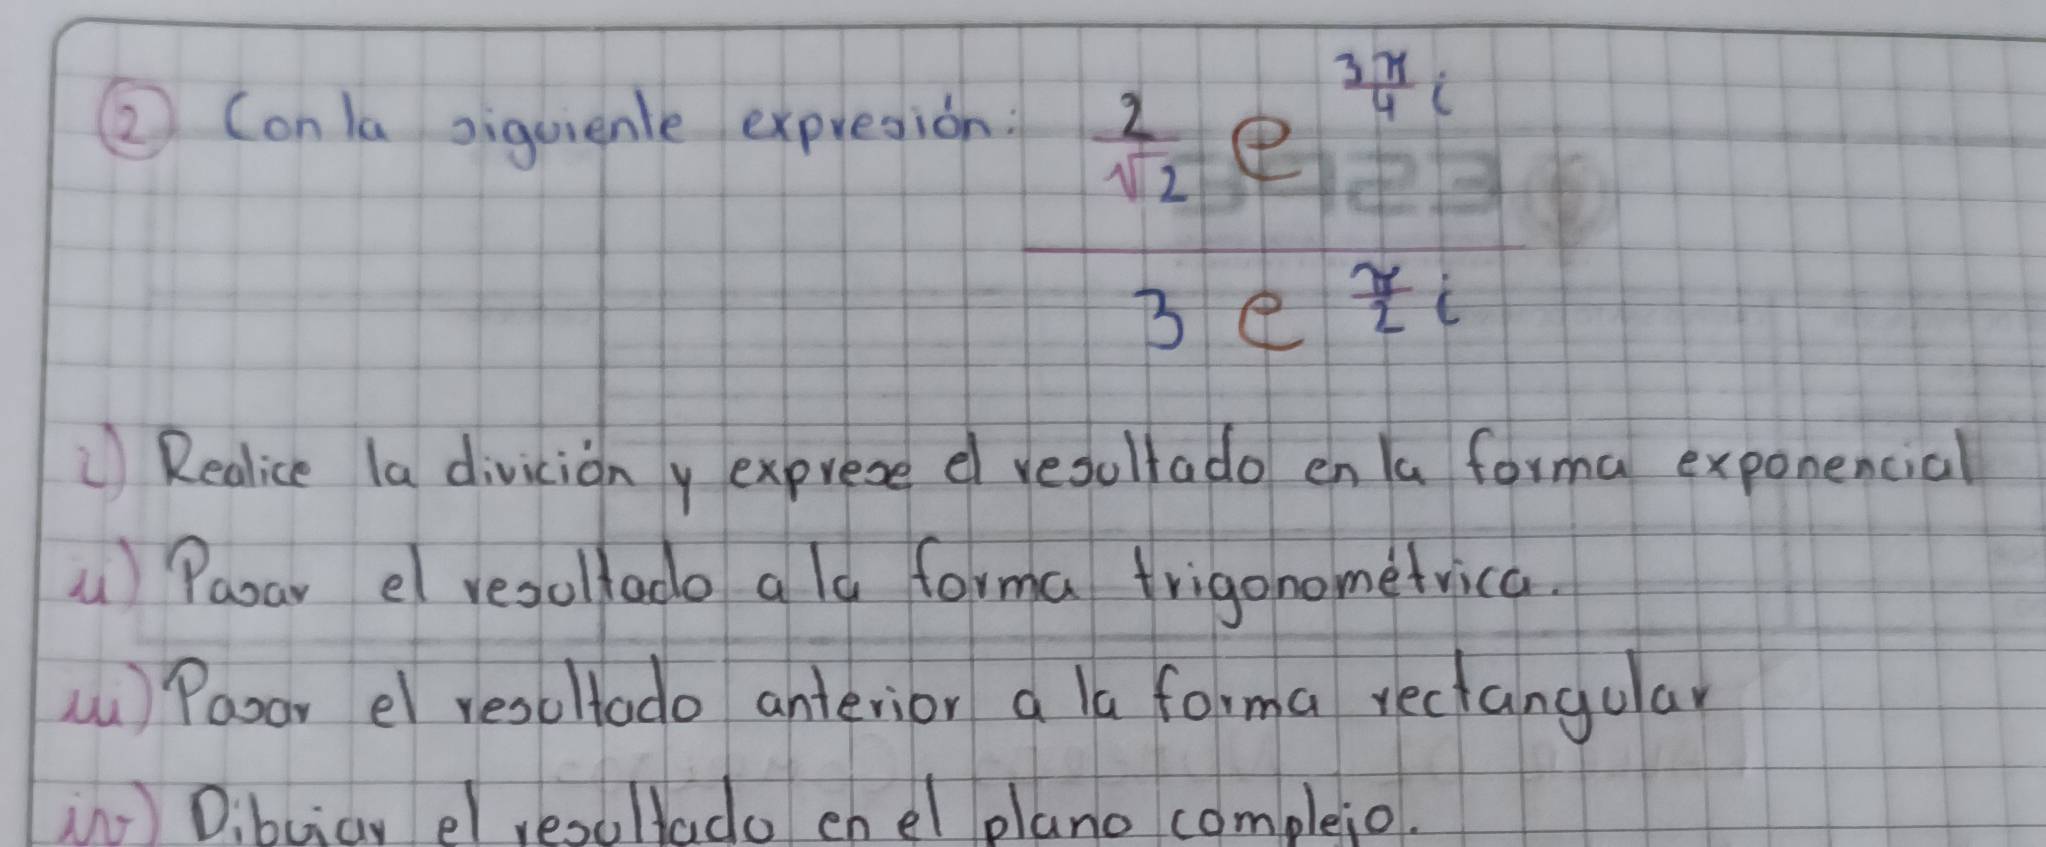 ② Con la siguiente expresión: \frac{\frac{2}{\sqrt{2}} e^{\frac{3π}{4} i}}{3 e^{\frac{π}{2} i}}
i) Realice la divición y exprese el resultado en la forma exponencial
ii) Pasar el resultado a la forma trigonométrica.
iii) Pasar el resultado anterior a la forma rectangular
iv) Dibujar el resultado en el plano complejo.